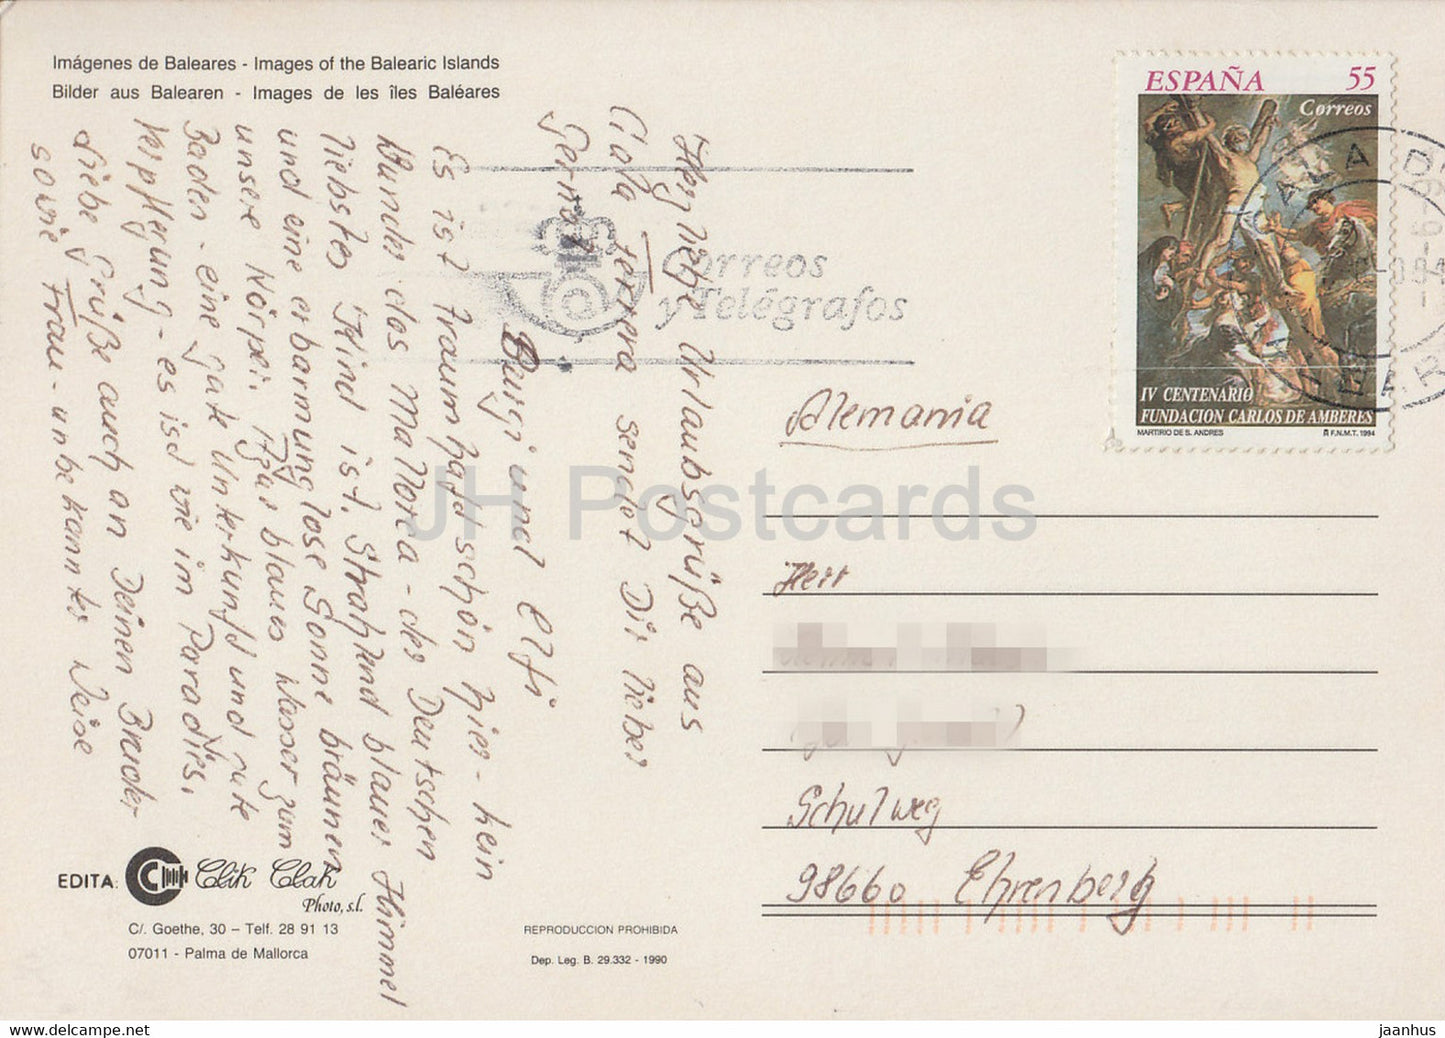 Imágenes de Baleares - Images of the Balearic Islands
Bilder aus Balearen - Images de les îles Baléares
Herzliche Urlaubsgrüße aus
Cala serrera sendet Dir lieber
Gernot
Burgi und Elfi
Es ist traumhaft schön hier - kein
Wunder das Mallorca - der Deutschen
liebstes Kind ist. Strahlend blauer Himmel
und eine erbarmungslose Sonne bräunen
unsere Körper. Azur blaues Wasser zum
Baden - eine gute Unterkunft und gute
Verpflegung - es ist wie im Paradies.
Liebe Grüße auch an Deinen Bruder
sowie Frau - unbekannter Weise
ESPAÑA 55
Correos
IV CENTENARIO
FUNDACION CARLOS DE AMBERES
MARTIRIO DE S. ANDRES
F.N.M.T. 1994
Correos
y Telégrafos
CALA D
Alemania
Herr
Schulweg
98660 Ehrenberg
JH Postcards
EDITA: Clik Clak
Photo, s.l.
C/. Goethe, 30 – Telf. 28 91 13
07011 - Palma de Mallorca
REPRODUCCION PROHIBIDA
Dep. Leg. B. 29.332 - 1990
www.hippostcard.com
jaanhus